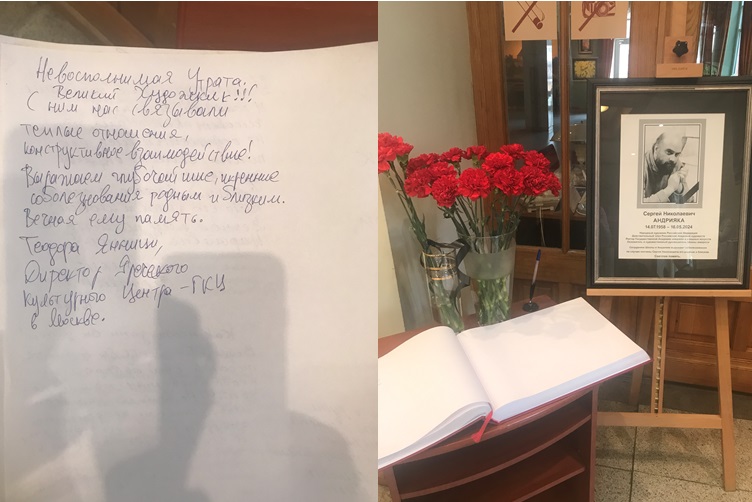 Невосполнимая утрата.
Великий Художник!!!
С ним нас связывали
теплые отношения,
конструктивное взаимодействие!
Выражаем глубочайшие, искренние
соболезнования родным и близким.
Вечная ему память.
Теодора Янници,
Директор Греческого
Культурного Центра - ГКЦ
в Москве.
Сергей Николаевич
АНДРИЯКА
14.07.1958 – 10.05.2024